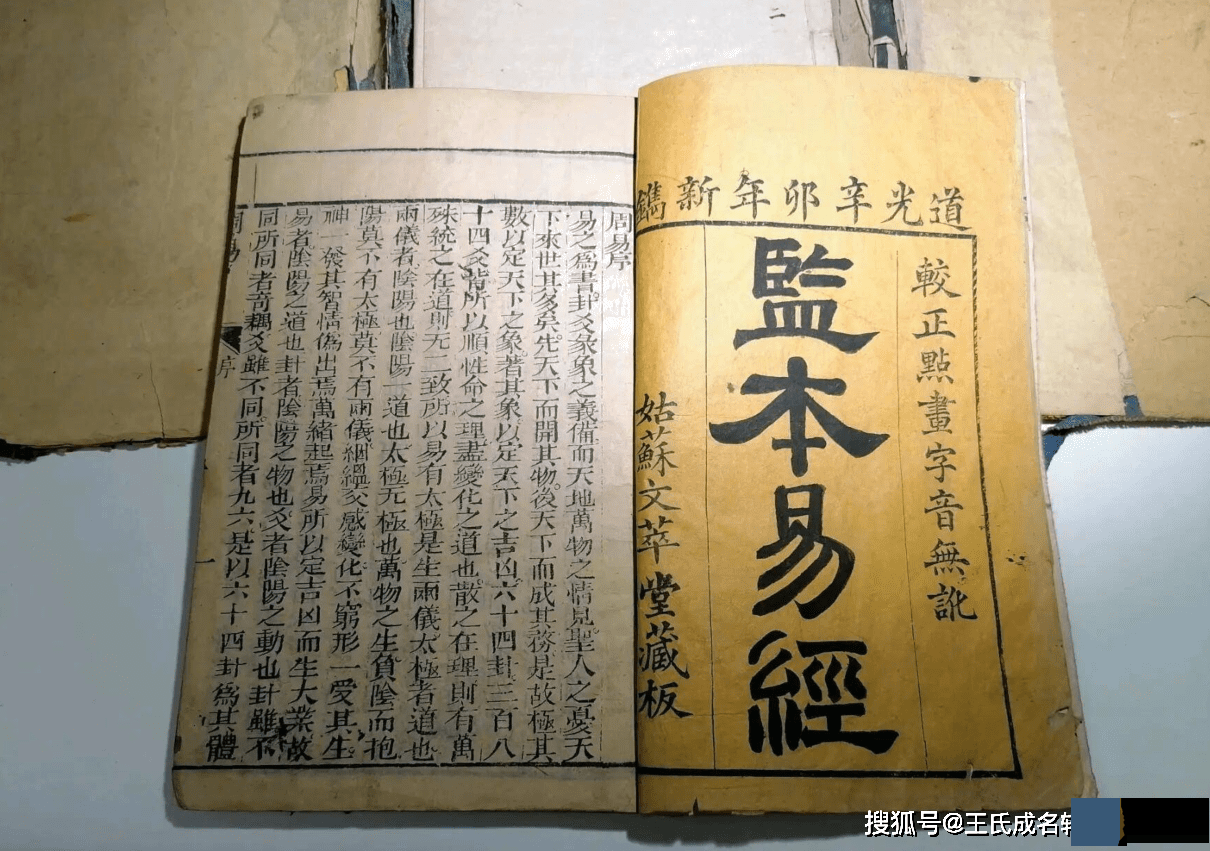 道光辛卯年新鐫
較正點畫字音無訛
監本易經
姑蘇文萃堂藏板
周易序
易之為書卦爻彖象之義備而天地萬物之情見聖人之憂天
下來世其多矣先天下而開其物後天下而成其務是故極其
數以定天下之象著其象以定天下之吉凶六十四卦三百八
十四爻皆所以順性命之理盡變化之道也散之在理則有萬
殊統之在道則无二致所以易有太極是生兩儀太極者道也
兩儀者陰陽也陰陽一道也太極无極也萬物之生負陰而抱
陽莫不有太極莫不有兩儀絪縕交感變化不窮形一受其生
神一發其智情偽出焉萬緒起焉易所以定吉凶而生大業故
易者陰陽之道也卦者陰陽之物也爻者陰陽之動也卦雖不
同所同者奇耦爻雖不同所同者九六是以六十四卦為其體
周易
序
一
搜狐号@王氏成名